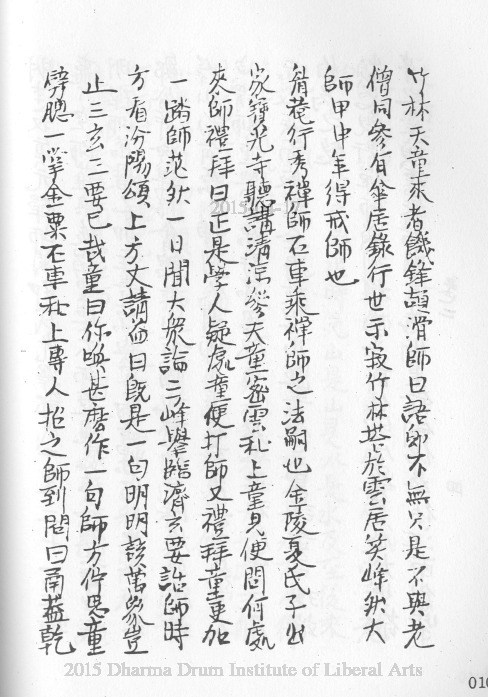 竹林天童來者饑鋒顢滑師曰語即不無只是不與老
僧同參有傘居錄行世示寂竹林塔於雲居笑峰然大
師甲申年得戒師也
眉菴行秀禪師石車乘禪師之法嗣也金陵夏氏子出
家寶光寺聽講清涼參天童密雲和上童見便問何處
來師禮拜曰正是學人疑處童便打師又禮拜童更加
一踏師茫然一日聞大眾論二峰舉臨濟玄要詰師時
方看汾陽頌上方丈請益曰既是一句明明該萬象豈
止三玄三要已哉童曰你喚甚麼作一句師方佇思童
劈腮一掌金粟石車和上專人招之師到問曰函蓋乾
2015 Dharma Drum Institute of Liberal Arts
010